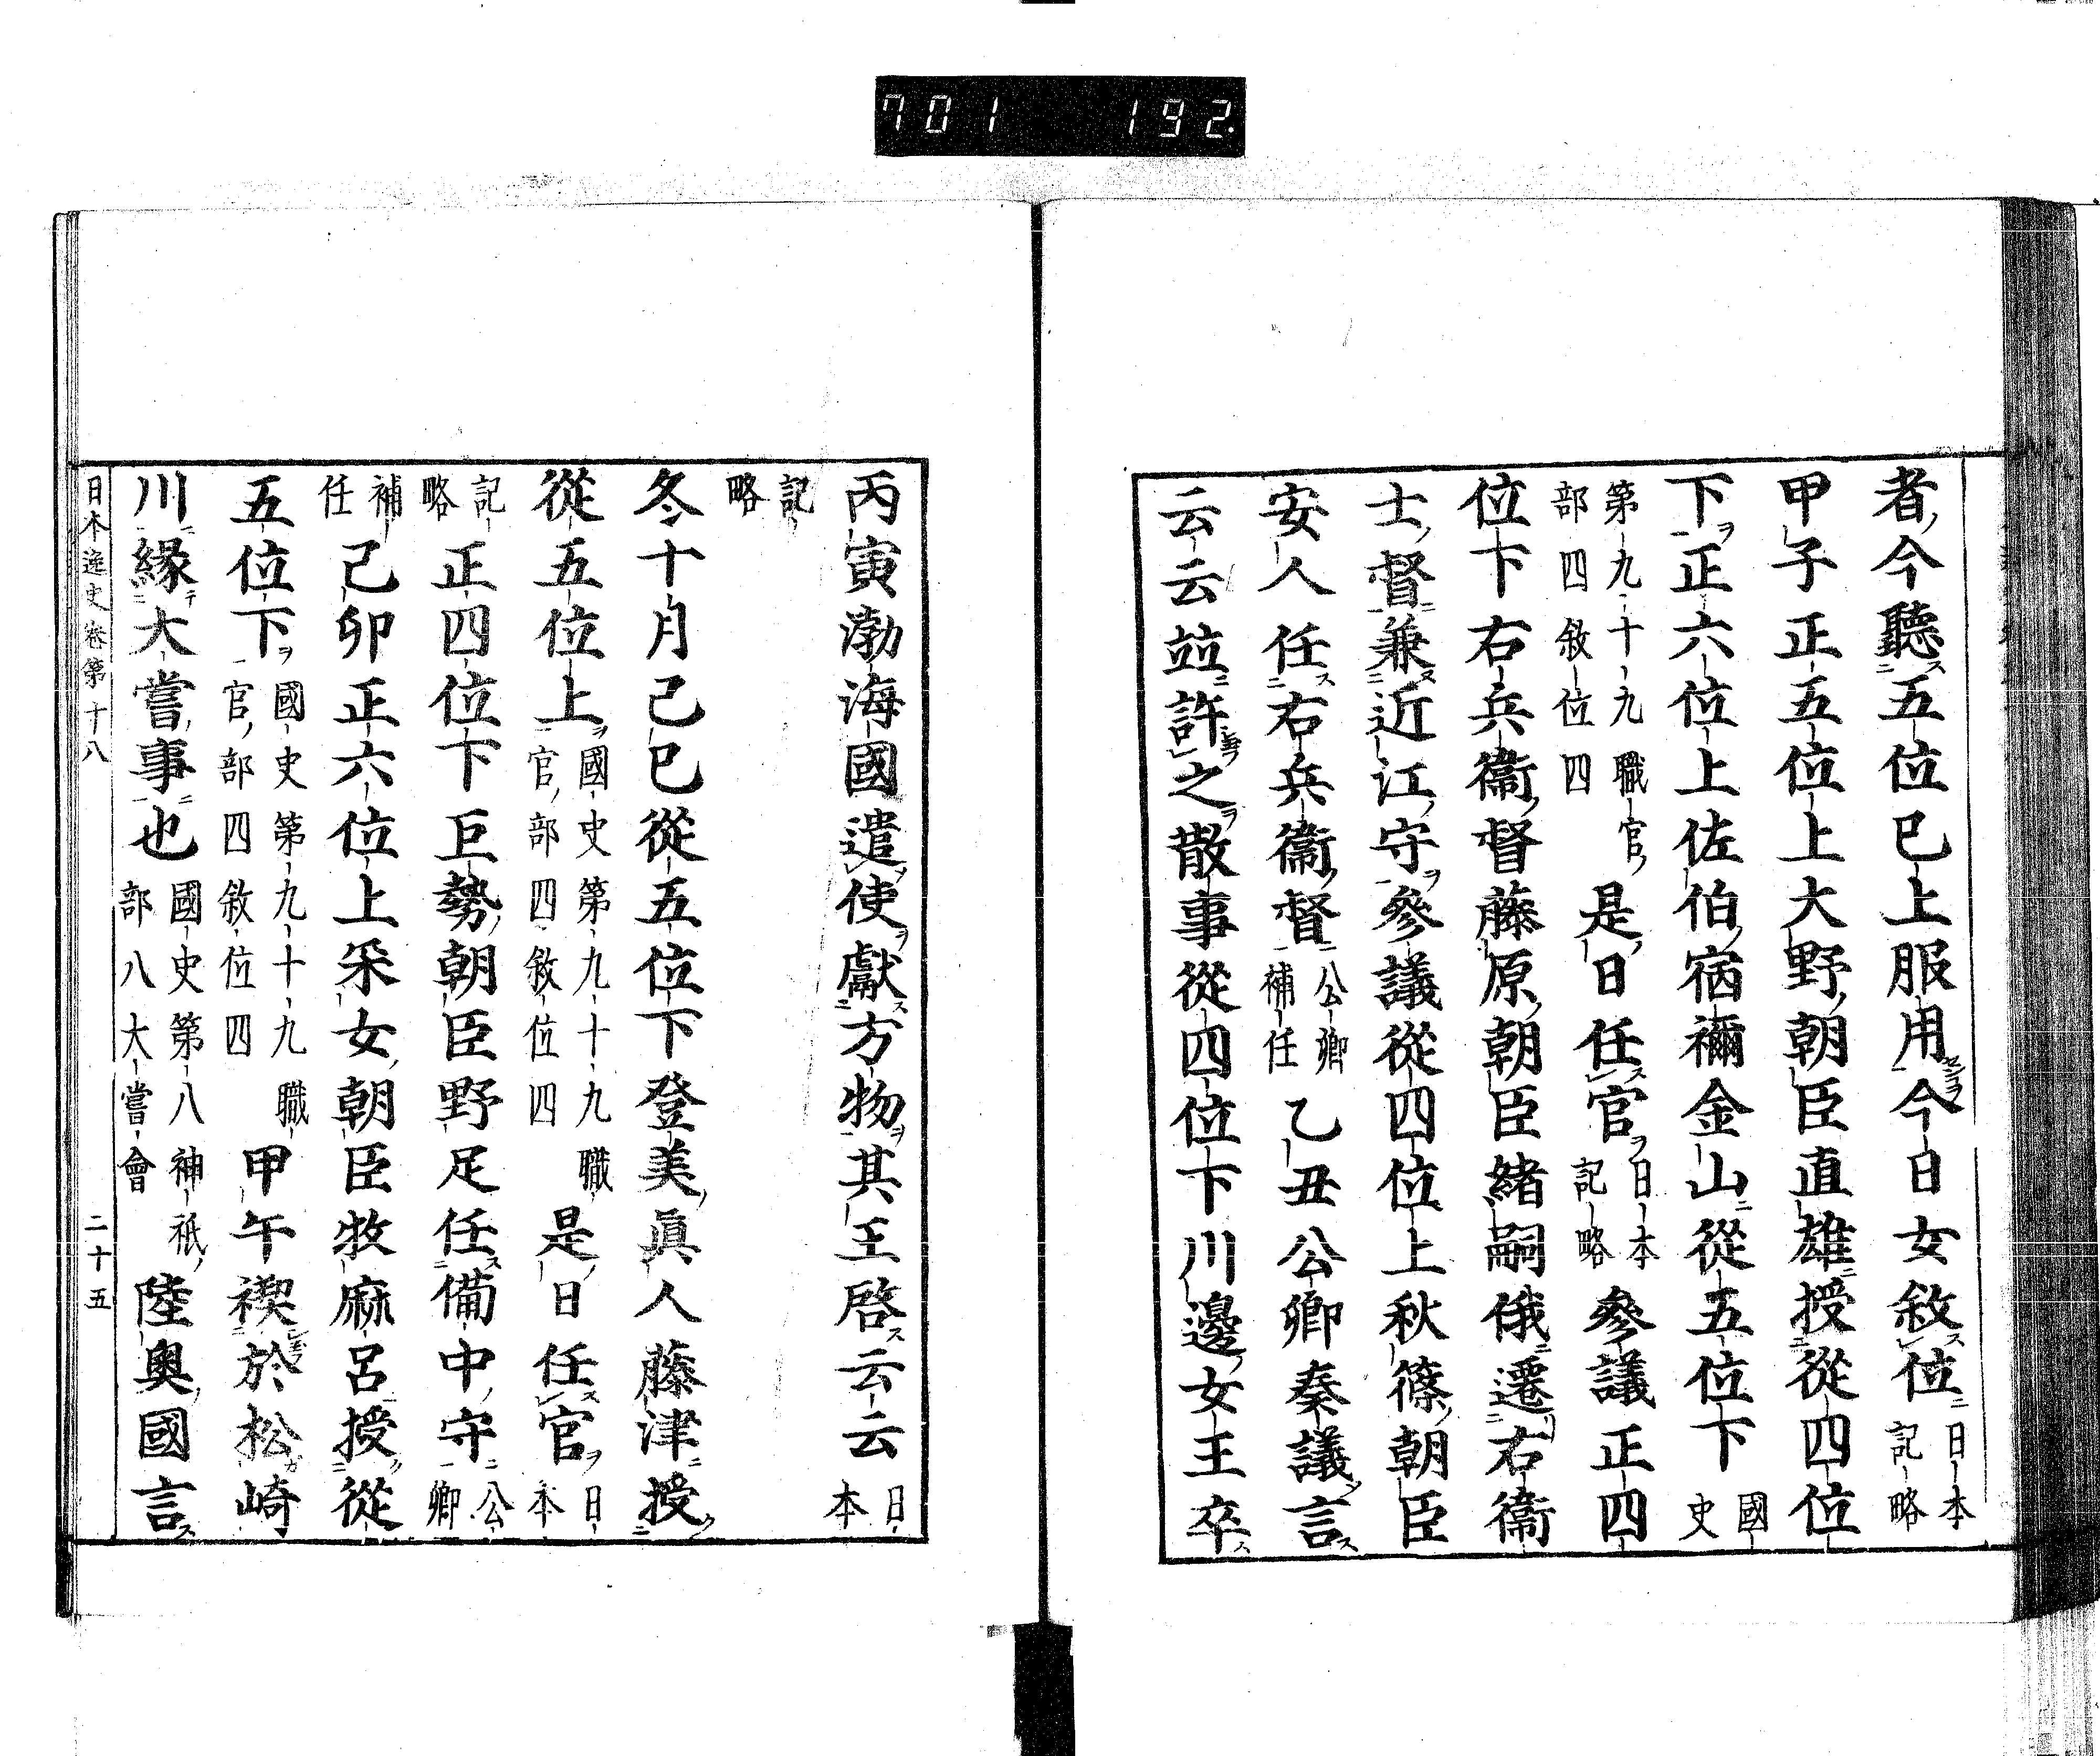 701 192
者今聽五位已上服用今日女敘位日本記略
甲子正五位上大野朝臣直雄授從四位
下正六位上佐伯宿禰金山從五位下國史
第九十九職官部四敘位四是日任官日本記略參議正四
位下右兵衞督藤原朝臣緒嗣俄遷右衞
士督兼近江守參議從四位上秋篠朝臣
安人任右兵衞督公卿補任乙丑公卿奏議言
云云竝許之散事從四位下川邊女王卒
丙寅渤海國遣使獻方物其王啓云云日本
記略
冬十月己巳從五位下登美眞人藤津授
從五位上國史第九十九職官部四敘位四是日任官日本
記略正四位下巨勢朝臣野足任備中守公卿
補任己卯正六位上采女朝臣牧麻呂授從
五位下國史第九十九職官部四敘位四甲午禊於松崎
川緣大嘗事也國史第八神祇部八大嘗會陸奧國言
日本逸史卷第十八 二十五